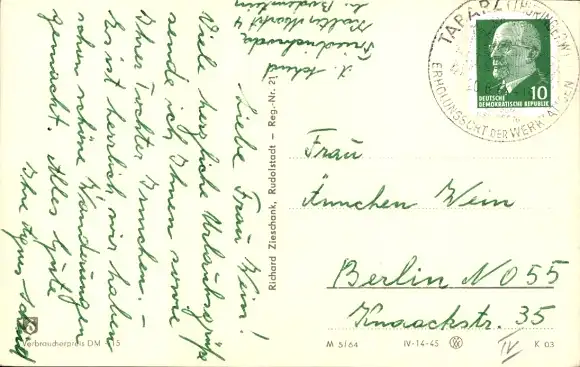 A. Schmid
Friedrichroda
Kalter Markt 4
b. Bodenstein
Liebe Frau Wein!
Viele herzliche Urlaubsgrüße
sende ich Ihnen sowie
Ihrer Tochter Irmchen. –
Es ist herrlich, wir haben
schon schöne Wanderungen
gemacht. Alles Gute
Ihre Agnes Schmid
Verbraucherpreis DM
Richard Zieschank, Rudolstadt – Reg.-Nr. 21
TABARZ (THÜRINGER W)
ERHOLUNGSORT DER WERKTÄTIGEN
10
DEUTSCHE
DEMOKRATISCHE REPUBLIK
Frau
Ännchen Wein
Berlin NO 55
Knaackstr. 35
IV
M 5/64 IV-14-45 K 03